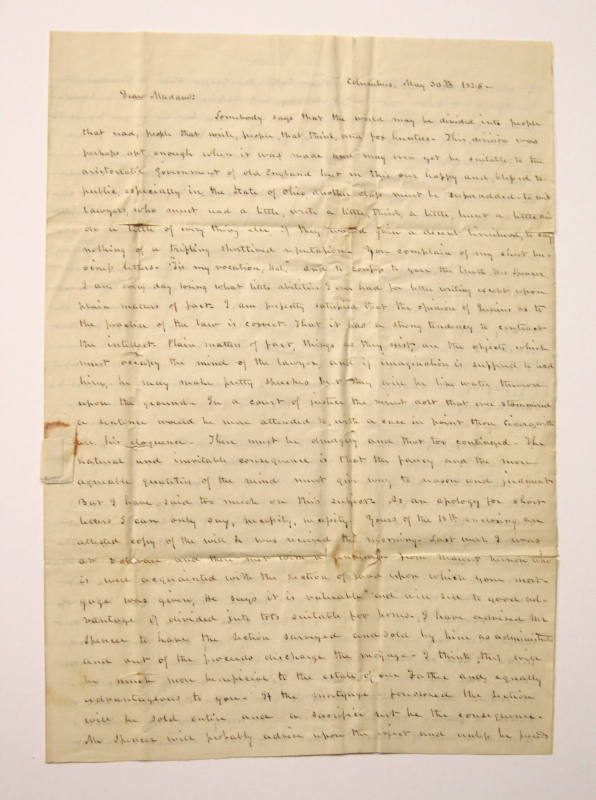 Columbus, May 30th 182
Dear Madam:
Somebody says that the world may be divided into people
that read, people that write, people, that think, and fox hunters. This division was
perhaps apt enough when it was made and may even yet be suitable to the
aristocratic Government of old England but in this our happy and blessed re-
public especially in the State of Ohio another class must be superadded to wit
Lawyers, who must read a little, write a little, think, a little, hunt a little and
do a little of every thing else if they would gain a decent livelihood, to say
nothing of a trifling shortlived reputation. You complain of my short bu-
siness letters. "Tis my vocation, Hal," and to confess to you the truth, Mrs Spencer
I am every day losing what little abilities I ever had for letter writing except upon
plain matters of fact. I am perfectly satisfied that the opinion of as to
the practice of the law is correct. That it has a strong tendency to contract
the intellect. Plain matters of fact, things as they exist, are the objects which
must occupy the mind of the lawyer and if imagination is suffered to lead
him, he may make pretty speeches but they will be like water thrown
upon the ground. In a court of justice the merest dolt that ever stammered
a sentence would be more attended to, with a case in point than
in his eloquence. There must be drudgery and that too continued. The
natural and inevitable consequence is that the fancy and the more
agreeable qualities of the mind must give way to reason and judgment.
But I have said too much on this subject. As an apology for short
letters I can only say, necessity, necessity. Yours of the 18th enclosing an
attested copy of the will &c was received this morning. Last week I was
at Delaware and there met with a from Mount Vernon who
is well acquainted with the section of land upon which your mort-
gage was given, He says it is valuable and will sell to good ad-
vantage if divided into lots suitable for homes. I have advised Mr
Spencer to have the section surveyed and sold by him as administrator
and out of the proceeds discharge the mortgage. I think this will
be much more beneficial to the estate of our Father and equally
advantageous to you. If the mortgage foreclosed the section
will be sold entire and a sacrifice must be the consequence.
Mr Spencer will probably advise upon the subject and unless he proceeds